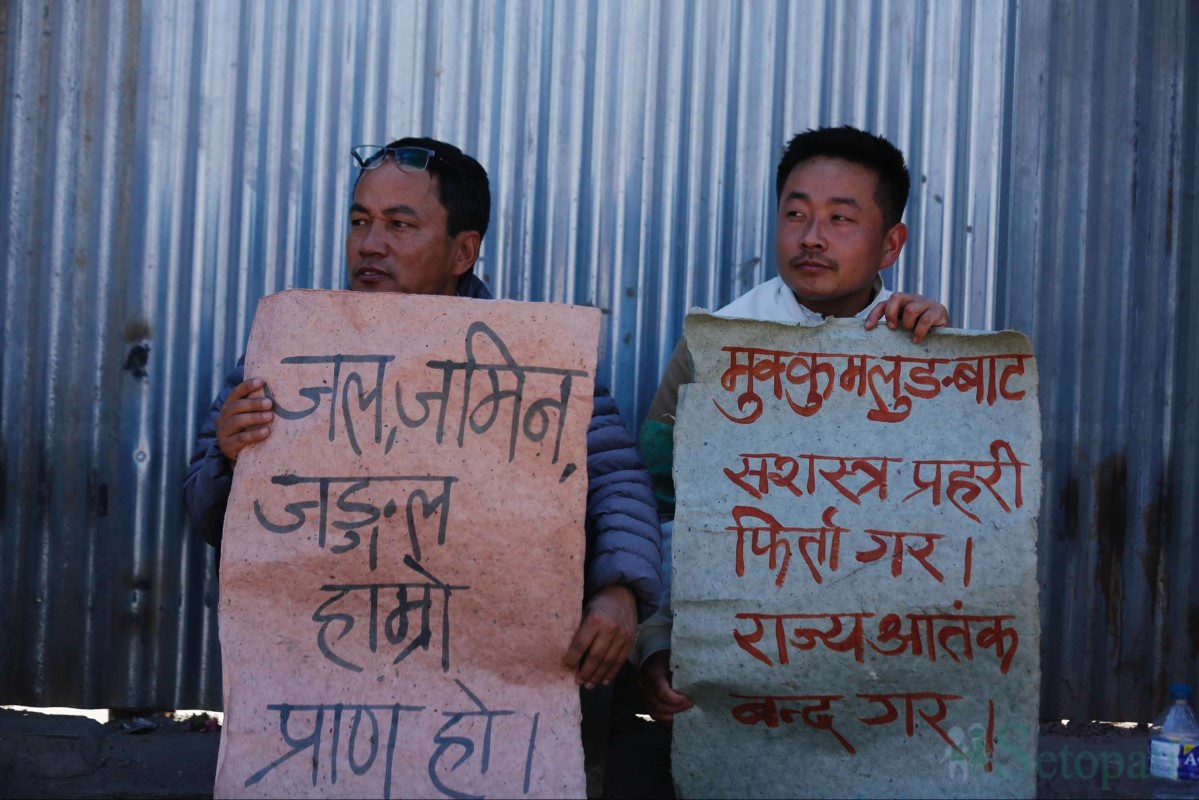 जल, जमिन,
जङ्गल
हाम्रो
प्राण हो ।
मुक्कुमलुङबाट
सशस्त्र प्रहरी
फिर्ता गर ।
राज्य आतंक
बन्द गर ।
Setopati